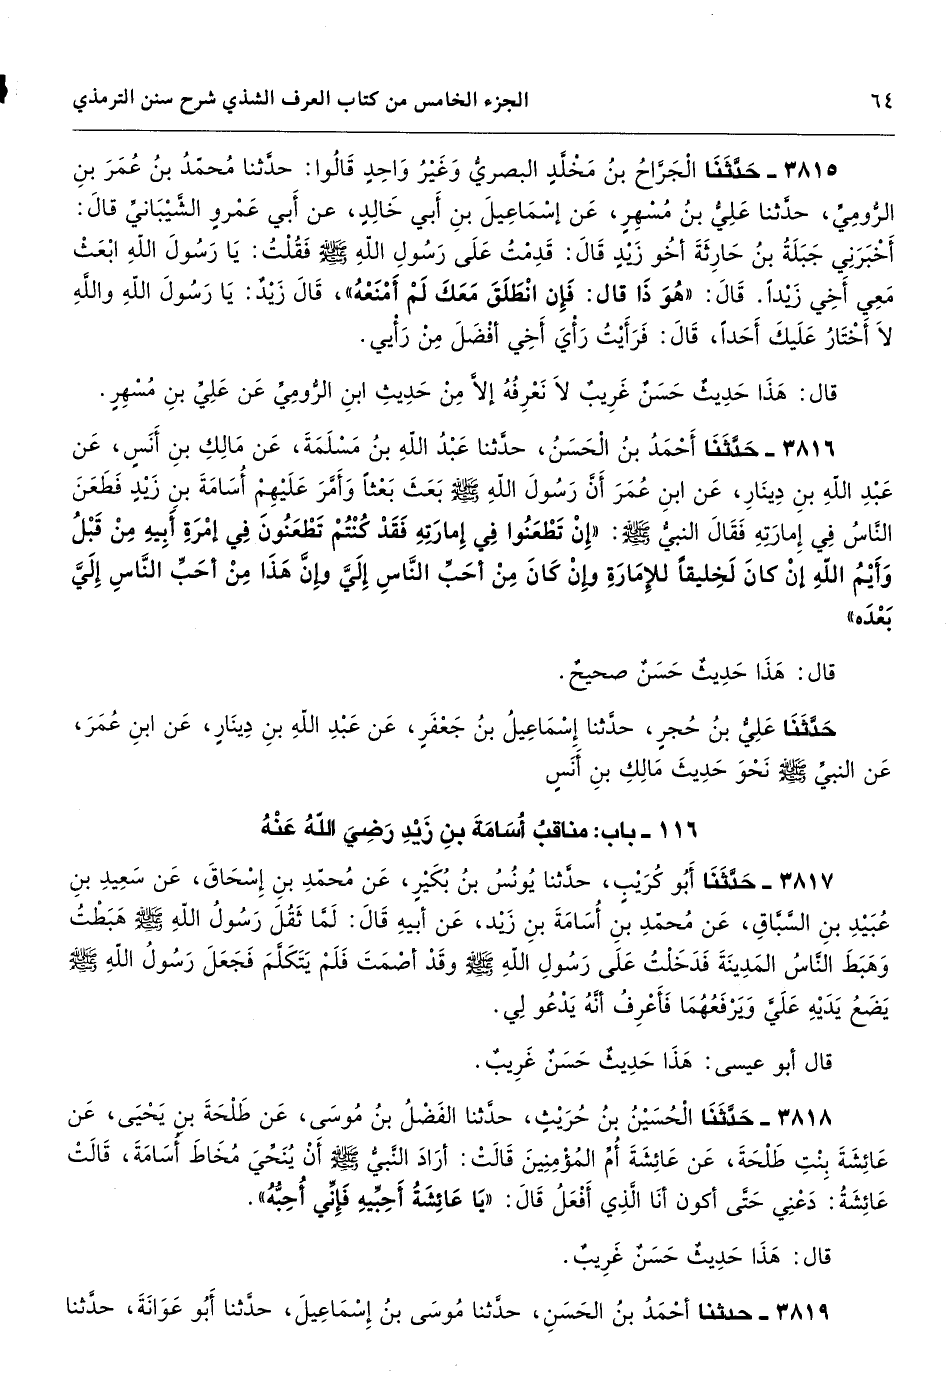 ٦٤ الجزء الخامس من كتاب العرف الشذي شرح سنن الترمذي
٣٨١٥ ـ حَدَّثَنَا الْجَرَّاحُ بنُ مَخْلَدٍ البصريُّ وَغَيْرُ وَاحِدٍ قَالُوا: حدَّثنا مُحمّدُ بنُ عُمَرَ بنِ
الرُّومِيِّ، حدَّثنا عَلِيُّ بنُ مُسْهِرٍ، عَن إسْمَاعِيلَ بنِ أبي خَالِدٍ، عن أبي عَمْرٍو الشَّيْبَانيِّ قالَ:
أَخْبَرَنِي جَبَلَةُ بنُ حَارِثَةَ أخُو زَيْدٍ قَالَ: قَدِمْتُ عَلَى رَسُولِ اللّهِ ﷺ فَقُلْتُ: يَا رَسُولَ اللّهِ ابْعَثْ
مَعِي أَخِي زَيْداً. قَالَ: «هُوَ ذَا قال: فَإن انْطَلَقَ مَعَكَ لَمْ أمْنَعْهُ»، قَالَ زَيْدٌ: يَا رَسُولَ اللّهِ واللّهِ
لاَ أَخْتَارُ عَلَيكَ أَحَداً، قَالَ: فَرَأيْتُ رَأْيَ أَخِي أفْضَلَ مِنْ رَأْيي.
قال: هَذَا حَدِيثٌ حَسَنٌ غَرِيبٌ لاَ نَعْرِفُهُ إلاَّ مِنْ حَدِيثِ ابنِ الرُّومِيِّ عَن عَلِيِّ بنِ مُسْهِرٍ.
٣٨١٦ ـ حَدَّثَنَا أَحْمَدُ بنُ الْحَسَنُ، حدَّثنا عَبْدُ اللّهِ بنُ مَسْلَمَةَ، عَن مَالِكِ بنِ أَنَسٍ، عَن
عَبْدِ اللّهِ بنِ دِينَارٍ، عَن ابنِ عُمَرَ أَنَّ رَسُولَ اللّهِ ﷺ بَعَثَ بَعْثاً وَأمَّرَ عَلَيْهِمْ أُسَامَةَ بنِ زَيْدٍ فَطَعَنَ
النَّاسُ فِي إمارَتِهِ فَقَالَ النبيُّ ﷺ: «إنْ تَطْعَنُوا فِي إمارَتِهِ فَقَدْ كُنْتُمْ تَطْعَنُونَ فِي إمْرَةِ أبِيهِ مِنْ قَبْلُ
وَأيْمُ اللّهِ إنْ كانَ لَخِليقاً للإمَارَةِ وإنْ كَانَ مِنْ أحَبِّ النَّاسِ إليَّ وإنَّ هَذَا مِنْ أحَبِّ النَّاسِ إليَّ
بَعْدَه»
قال: هَذَا حَدِيثٌ حَسَنٌ صحيحٌ.
حَدَّثَنَا عَلِيُّ بنُ حُجرٍ، حدَّثنا إسْمَاعِيلُ بنُ جَعْفَرٍ، عَن عَبْدِ اللّهِ بنِ دِينَارٍ، عَن ابنِ عُمَرَ،
عَن النبيِّ ﷺ نَحْوَ حَدِيثَ مَالِكِ بنِ أَنَسٍ
١١٦ ـ باب: مناقبُ أُسَامَةَ بنِ زَيْدٍ رَضِيَ اللّهُ عَنْهُ
٣٨١٧ ـ حَدَّثَنَا أَبُو كُرَيْبٍ، حدَّثنا يُونُسُ بنُ بُكَيْرٍ، عَن مُحمّدِ بنِ إسْحَاقَ، عَن سَعِيدِ بنِ
عُبَيْدِ بنِ السَّبَّاقِ، عَن مُحمّدِ بنِ أُسَامَةَ بنِ زَيْد، عَن أبيهِ قَالَ: لَمَّا ثَقُلَ رَسُولُ اللّهِ ﷺ هَبَطْتُ
وَهَبَطَ النَّاسُ المَدِينَةَ فَدَخَلْتُ عَلَى رَسُولِ اللّهِ ﷺ وقَدْ أصْمَتَ فَلَمْ يَتَكَلَّمَ فَجَعَلَ رَسُولُ اللّهِ ﷺ
يَضَعُ يَدَيْهِ عَلَيَّ وَيَرْفَعُهُمَا فَأَعْرِفُ أنَّهُ يَدْعُو لِي.
قال أبو عيسى: هَذَا حَدِيثٌ حَسَنٌ غَرِيبٌ.
٣٨١٨ ـ حَدَّثَنَا الْحُسَيْنُ بنُ حُرَيْثٍ، حدَّثنا الفَضْلُ بنُ مُوسَى، عَن طَلْحَةَ بنِ يَحْيَى، عَن
عَائِشَةَ بِنْتِ طَلْحَةَ، عَن عَائِشَةَ أُمِّ المُؤْمِنِينَ قَالَتْ: أرَادَ النَّبيُّ ﷺ أَنْ يُنَحِّيَ مُخَاطَ أُسَامَةَ، قَالَتْ
عَائِشَةُ: دَعْنِي حَتَّى أكون أنَا الَّذِي أفْعَلُ قَالَ: «يَا عَائِشَةُ أحِبِّيهِ فَإنِّي أُحِبُّهُ».
قال: هَذَا حَدِيثٌ حَسَنٌ غَرِيبٌ.
٣٨١٩ ـ حدثنا أحْمَدُ بنُ الحَسَنِ، حدَّثنا مُوسَى بنُ إسْمَاعِيلَ، حدَّثنا أَبُو عَوَانَةَ، حدَّثنا